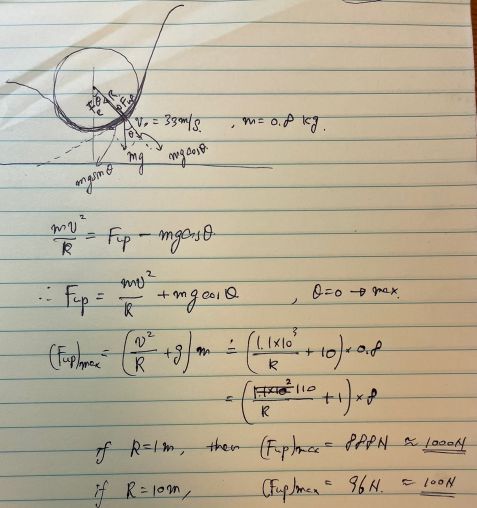 R
θ
Fup
v₀ = 33m/s. , m = 0.8 kg.
θ
mg
mgcosθ
mgsinθ
mv²/R = Fup − mgcosθ
∴ Fup = mv²/R + mgcosθ , θ=0 → max.
(Fup)max = (v²/R + g) m ≒ (1.1×10³/R + 10) × 0.8
= (110/R + 1) × 8
if R = 1m, then (Fup)max = 888N ≈ 1000N
if R = 10m, (Fup)max = 96N. ≈ 100N